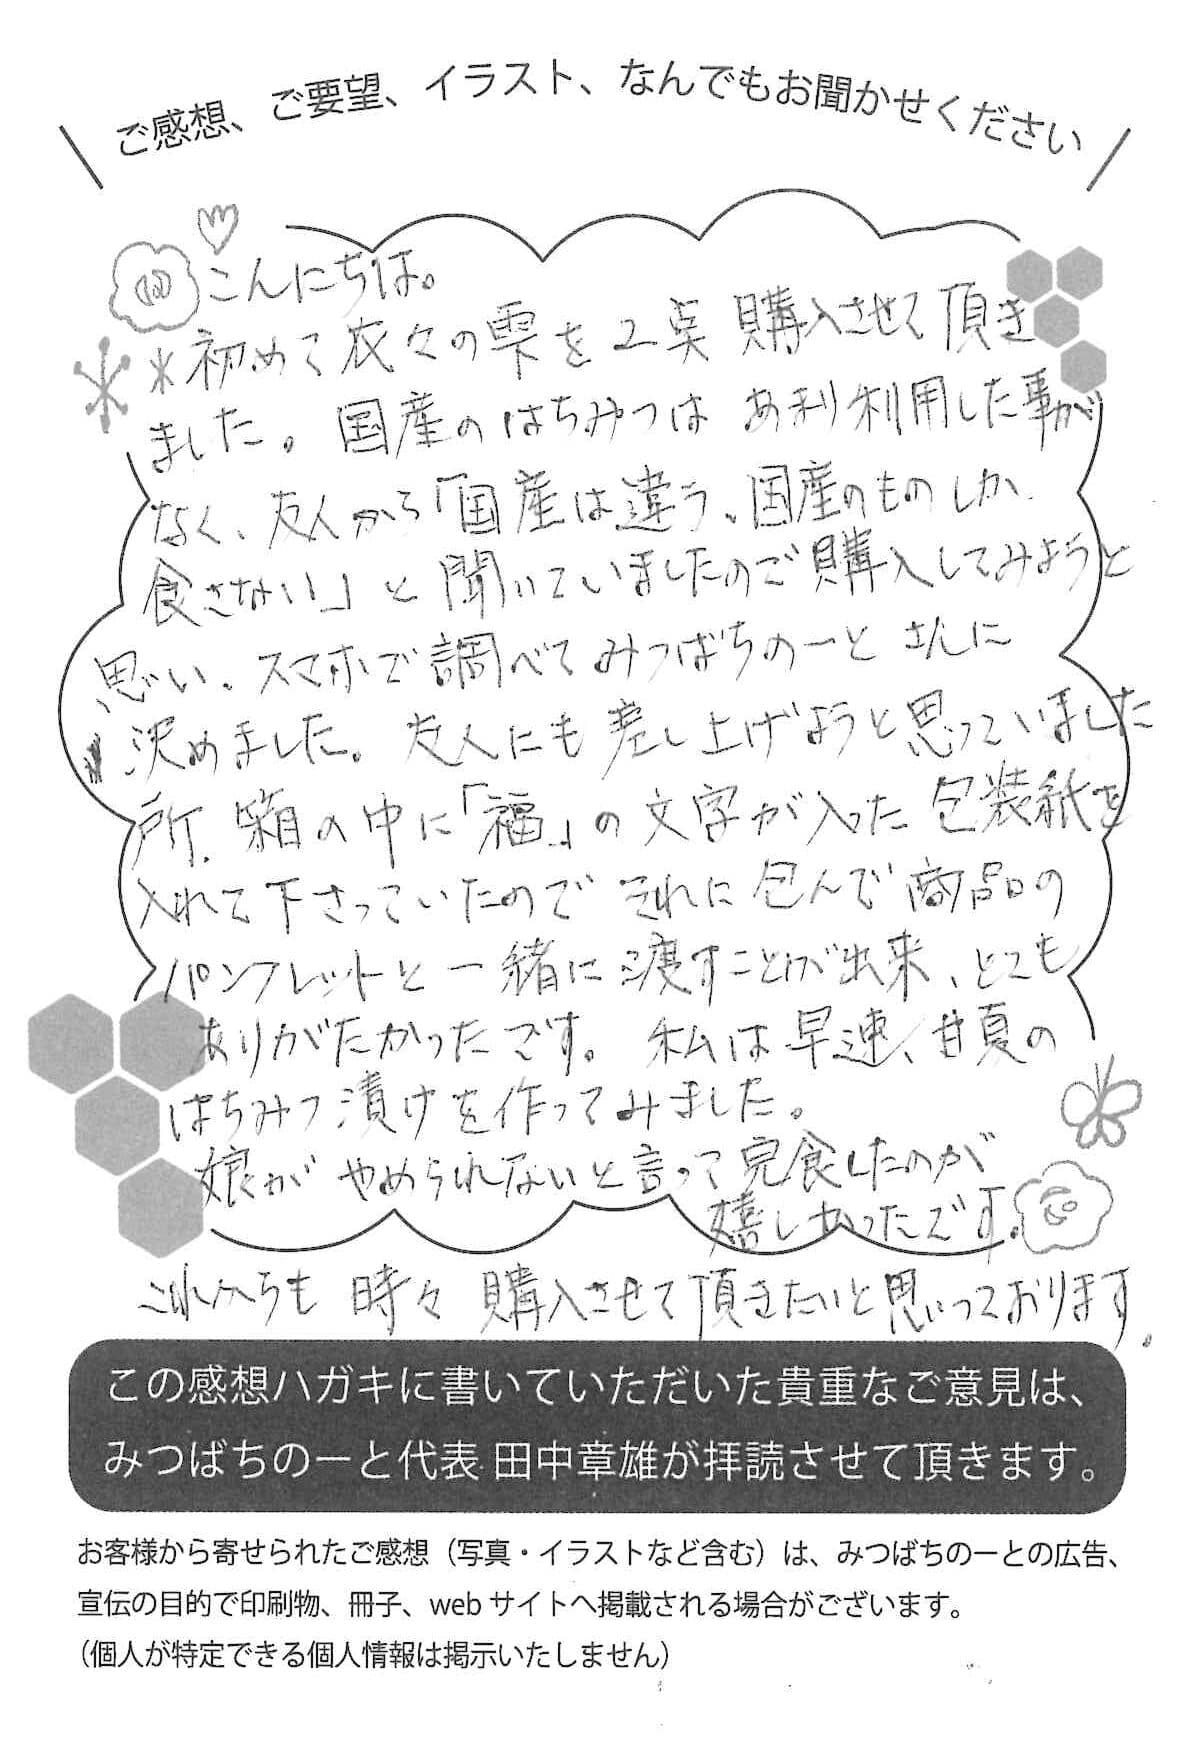 ご感想、ご要望、イラスト、なんでもお聞かせください
こんにちは。
初めて衣々の雫を2点 購入させて頂き
ました。国産のはちみつは あまり利用した事が
なく、友人から「国産は違う、国産のものしか
食さない」と聞いていましたのでご購入してみようと
思い、スマホで調べてみつばちのーと さんに
決めました。友人にも差し上げようと思っていました
所、箱の中に「福」の文字が入った包装紙を
入れて下さっていたので それに包んで商品の
パンフレットと一緒に渡すことが出来、とても
ありがたかったです。私は早速、甘夏の
はちみつ漬けを作ってみました。
娘が やめられないと言って完食したのが
嬉しかったです。
これからも 時々 購入させて頂きたいと思いっております。
この感想ハガキに書いていただいた貴重なご意見は、
みつばちのーと代表 田中章雄が拝読させて頂きます。
お客様から寄せられたご感想（写真・イラストなど含む）は、みつばちのーとの広告、
宣伝の目的で印刷物、冊子、web サイトへ掲載される場合がございます。
（個人が特定できる個人情報は掲示いたしません）